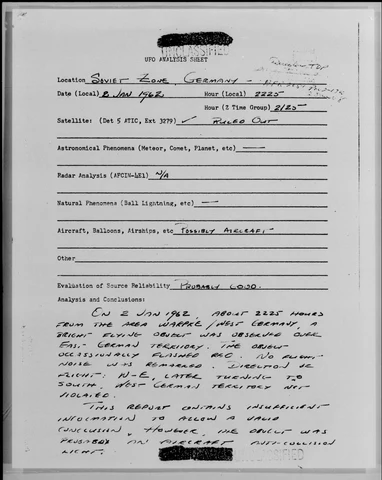 UNCLASSIFIED
UFO ANALYSIS SHEET
Location SOVIET ZONE, GERMANY -
Date (Local) 2 JAN 1962 Hour (Local) 2225
Hour (Z Time Group) 2125
Satellite: (Det 5 ATIC, Ext 3279) ✓ RULED OUT
Astronomical Phenomena (Meteor, Comet, Planet, etc) —
Radar Analysis (AFCIN-4E1) N/A
Natural Phenomena (Ball Lightning, etc) —
Aircraft, Balloons, Airships, etc POSSIBLY AIRCRAFT
Other
Evaluation of Source Reliability PROBABLY GOOD.
Analysis and Conclusions:
ON 2 JAN 1962, ABOUT 2225 HOURS
FROM THE AREA WARPKE/WEST GERMANY, A
BRIGHT FLYING OBJECT WAS OBSERVED OVER
EAST GERMAN TERRITORY. THE OBJECT
OCCASSIONALLY FLASHED RED. NO FLIGHT
NOISE WAS REMARKED. DIRECTION OF
FLIGHT: N-E LATER TURNING TO
SOUTH. WEST GERMAN TERRITORY NOT
VIOLATED.
THIS REPORT CONTAINS INSUFFICIENT
INFORMATION TO ALLOW A VALID
CONCLUSION, HOWEVER, THE OBJECT WAS
PROBABLY AN AIRCRAFT ANTI-COLLISION
LIGHT.